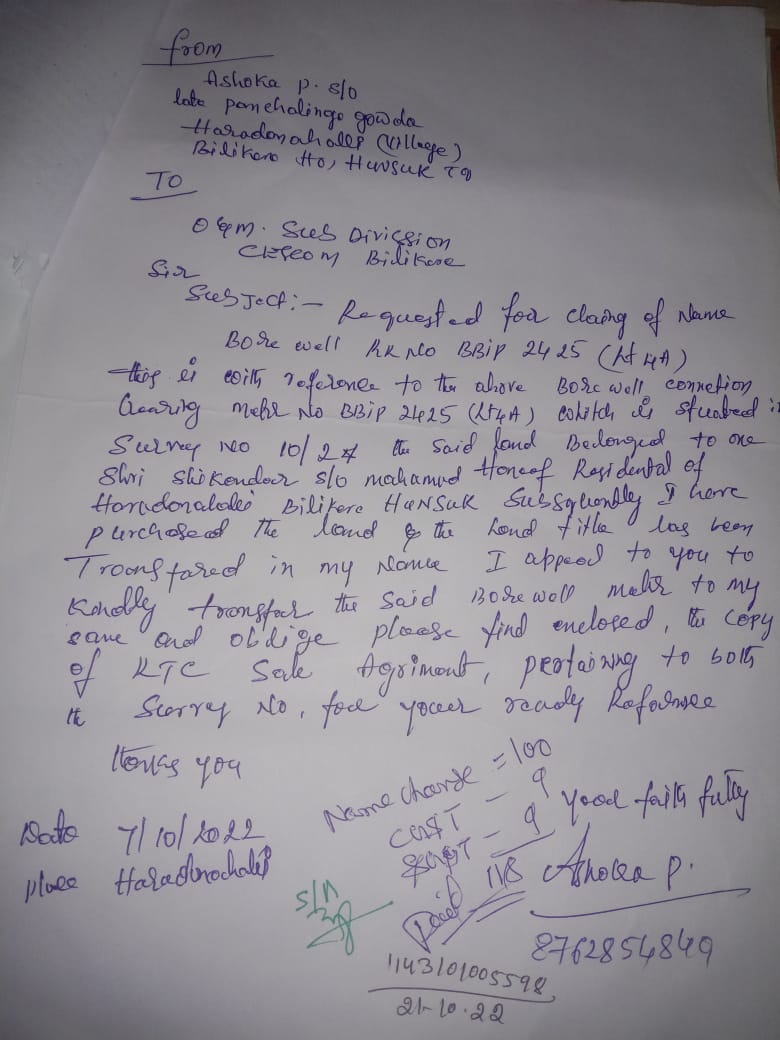 from
Ashoka p. s/o
late panchalinge gowda
Haradonahalli (Village)
Bilikere Ho, HUNSUR Tq
TO
O &m. Sub Divission
CESCOM Bilikere
Sir
Subject:- Requested for claing of Name
Bore well RR No BBIP 2425 (Lt 4A)
this is with reference to the above Bore well connetion
bearing meter No BBIP 2425 (Lt4A) whitch is stuated in
Survey No 10/2 the said land Belonged to one
Shri Shikandar s/o mahamud Haneef Residental of
Haradonahalli Bilikere HUNSUR Subsquendly I have
purchased the land & the Land title has been
Troansfared in my Name I appeal to you to
Kindly transfar the said Bore well meter to my
same and oblige please find enclosed, the copy
of RTC Sale Agriment, pertaining to both
the Survey No, for youer ready Refarnsee
thanks you
Name change = 100
CGST - 9
SGST - 9
118
Paid
your faith fully
Date 7/10/2022
place Haradonahalli
Ashoka p.
8762854849
S/A
1143101005598
21-10-22